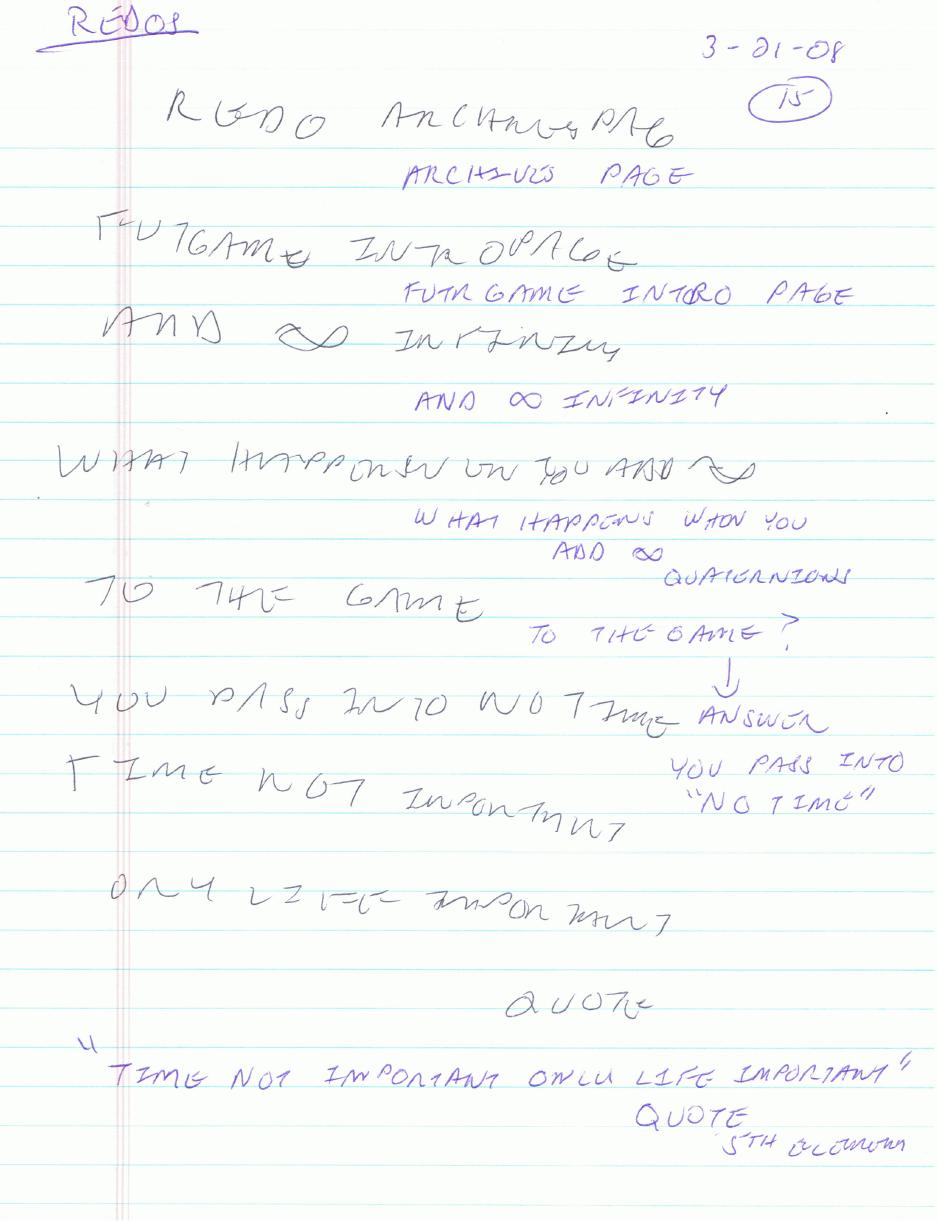 REDOS
3-21-08
15
REDO ARCHIVES PAG
ARCHIVES PAGE
FUTGAME INTROPAGE
FUTR GAME INTRO PAGE
AND ∞ INFINITY
AND ∞ INFINITY
WHAT HAPPENSN WN YOU ADD ∞
WHAT HAPPENS WHEN YOU
ADD ∞
QUATERNIONS
TO THE GAME
TO THE GAME?
↓
YOU PASS INTO NO TIME ANSWER
YOU PASS INTO
TIME NOT IMPORTANT
"NO TIME"
ONLY LIFE IMPORTANT
QUOTE
"TIME NOT IMPORTANT ONLY LIFE IMPORTANT"
QUOTE
5TH